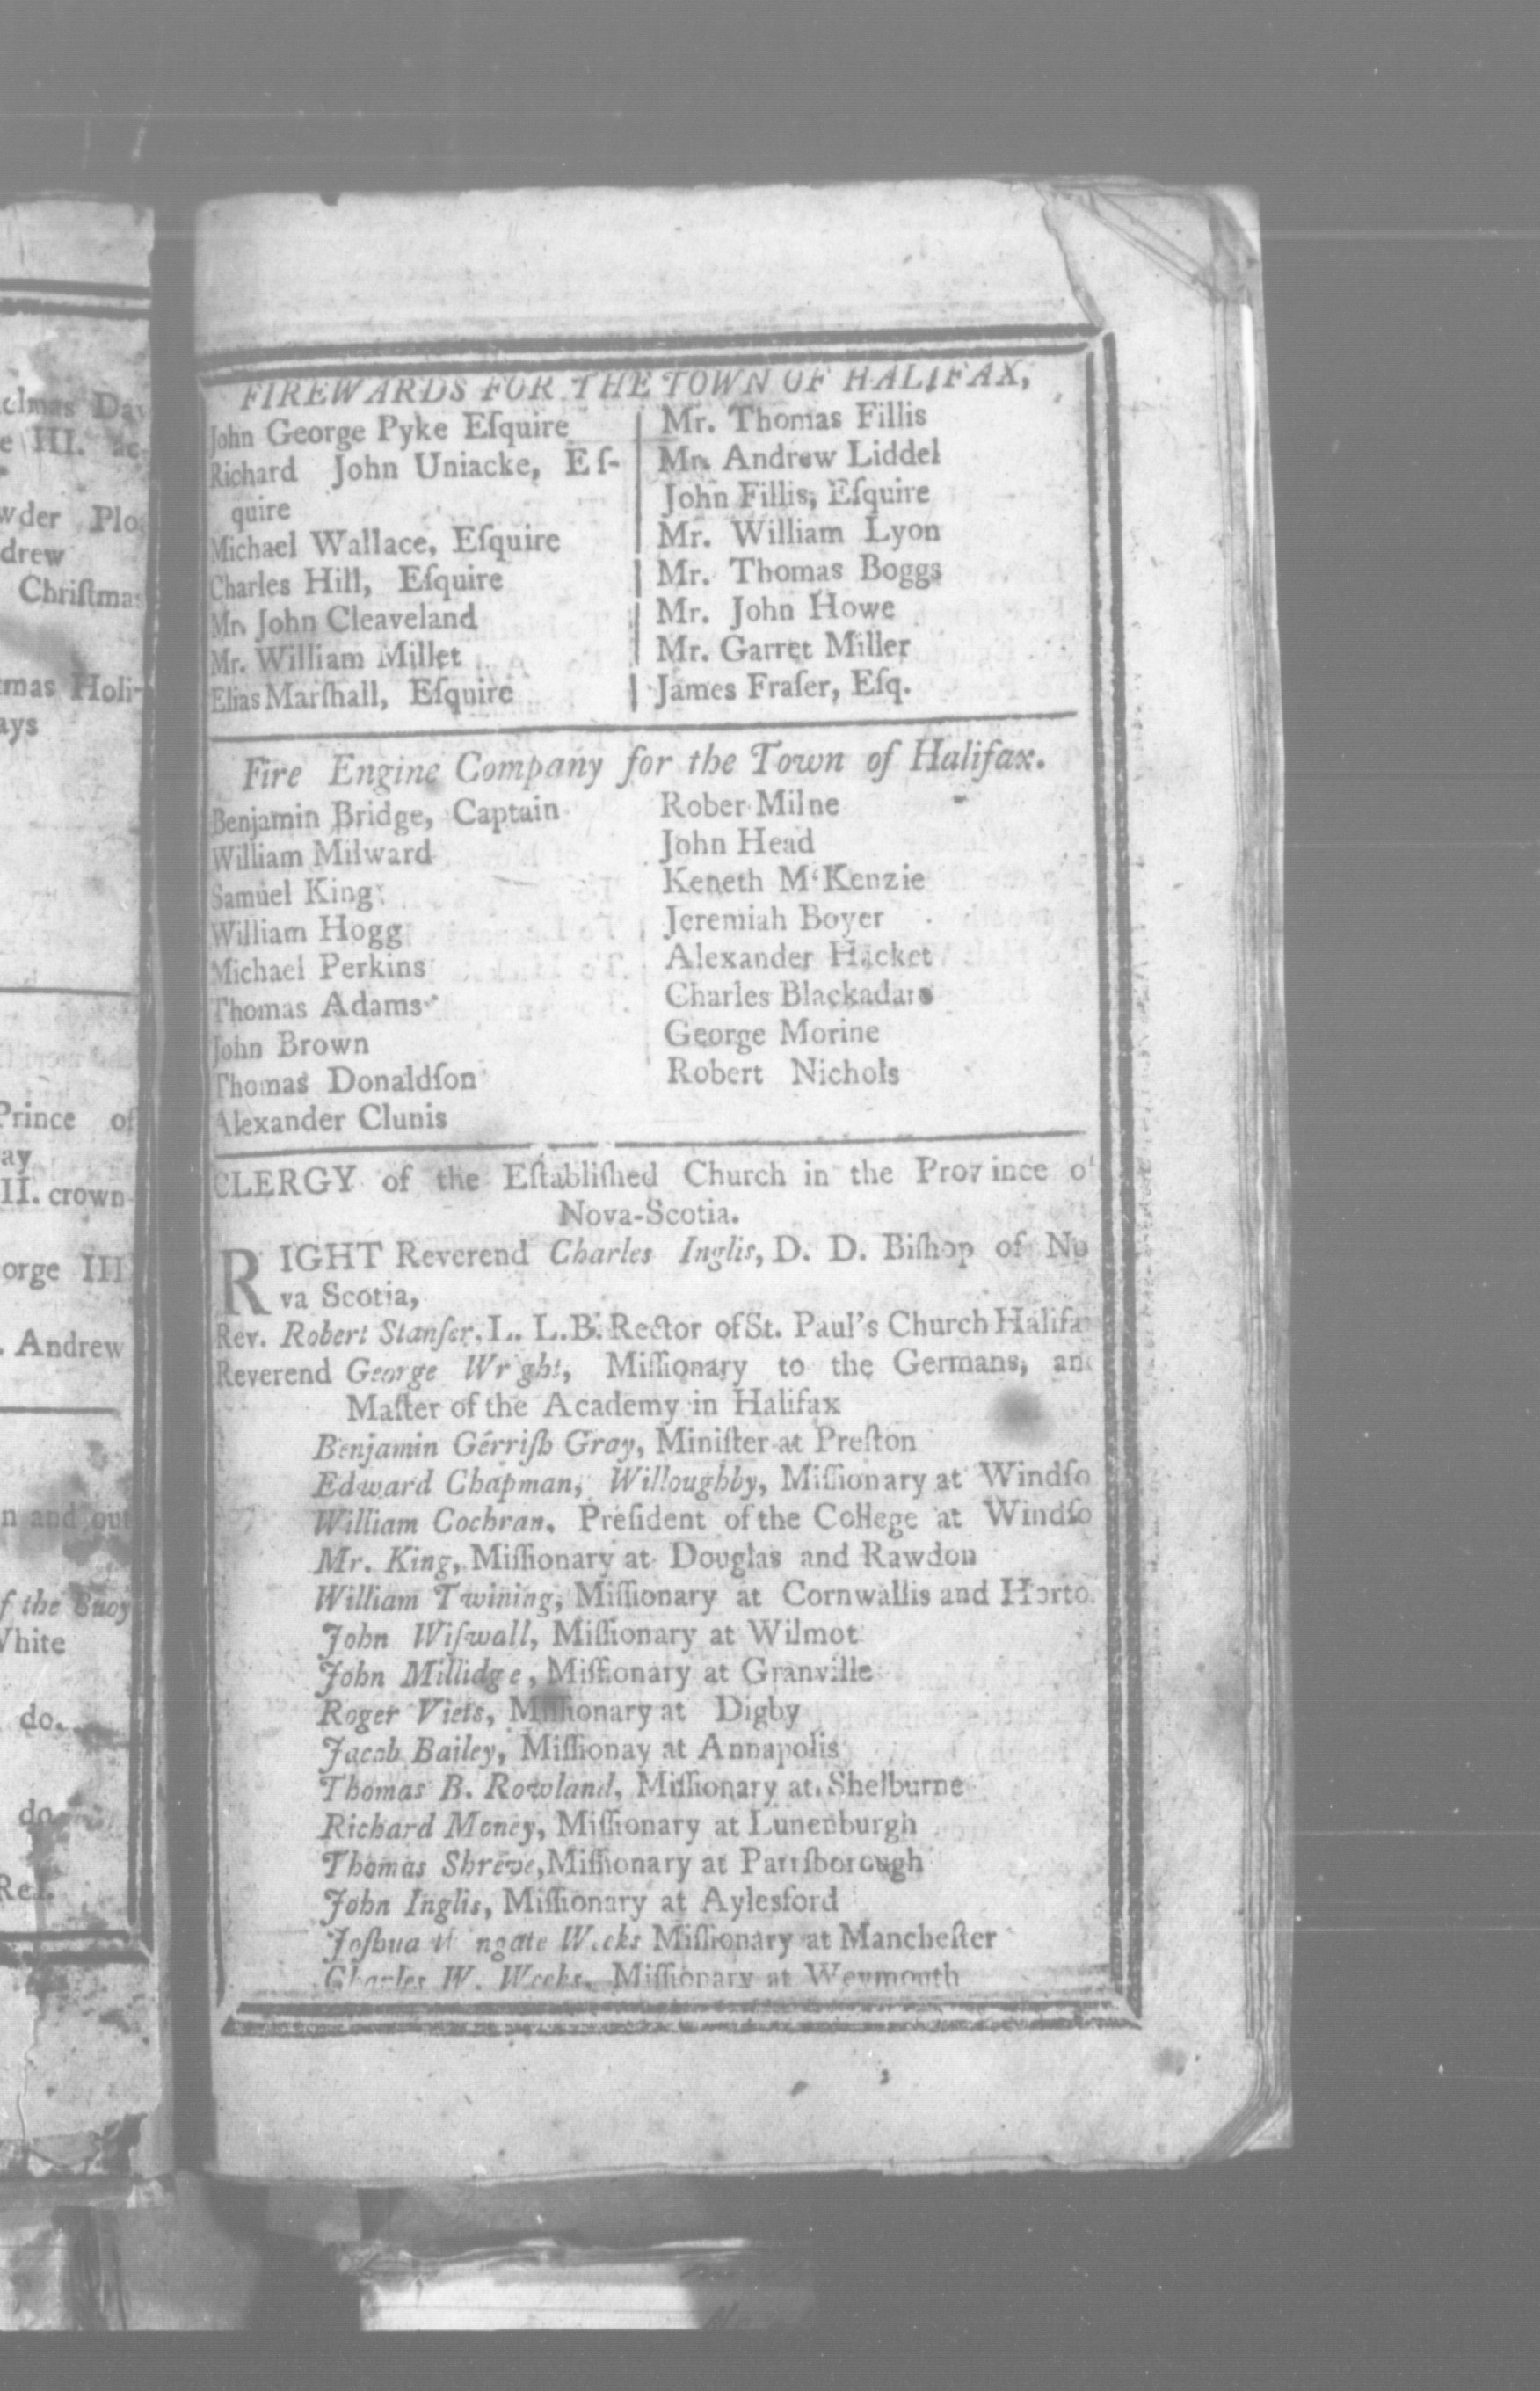 clmas Day
e III. ac-
wder Plo
drew
Chriſtmas
tmas Holi-
ays
Prince of
ay
II. crown-
orge III
. Andrew
n and out
f the Buoy
White
do.
do.
Ref.
FIREWARDS FOR THE TOWN OF HALIFAX,
John George Pyke Eſquire
Richard John Uniacke, Eſ-
quire
Michael Wallace, Eſquire
Charles Hill, Eſquire
Mr. John Cleaveland
Mr. William Millet
Elias Marſhall, Eſquire
Mr. Thomas Fillis
Mr. Andrew Liddel
John Fillis, Eſquire
Mr. William Lyon
Mr. Thomas Boggs
Mr. John Howe
Mr. Garret Miller
James Fraſer, Eſq.
Fire Engine Company for the Town of Halifax.
Benjamin Bridge, Captain
William Milward
Samuel King
William Hogg
Michael Perkins
Thomas Adams
John Brown
Thomas Donaldſon
Alexander Clunis
Rober Milne
John Head
Keneth M‘Kenzie
Jeremiah Boyer
Alexander Hacket
Charles Blackadars
George Morine
Robert Nichols
CLERGY of the Eſtabliſhed Church in the Province o
Nova-Scotia.
RIGHT Reverend Charles Inglis, D. D. Biſhop of No
va Scotia,
Rev. Robert Stanſer, L. L.B. Rector of St. Paul's Church Halifa
Reverend George Wr ght, Miſſionary to the Germans, an
Maſter of the Academy in Halifax
Benjamin Gerriſh Gray, Miniſter at Preſton
Edward Chapman, Willoughby, Miſſionary at Windſo
William Cochran, Preſident of the College at Windſo
Mr. King, Miſſionary at Douglas and Rawdon
William Twining, Miſſionary at Cornwallis and Horto
John Wiſwall, Miſſionary at Wilmot
John Millidge, Miſſionary at Granville
Roger Viets, Miſſionary at Digby
Jacob Bailey, Miſſionay at Annapolis
Thomas B. Rowland, Miſſionary at Shelburne
Richard Money, Miſſionary at Lunenburgh
Thomas Shreve, Miſſionary at Partſborough
John Inglis, Miſſionary at Aylesford
Joſhua W ngate Weeks Miſſionary at Mancheſter
Charles W. Weeks, Miſſionary at Weymouth